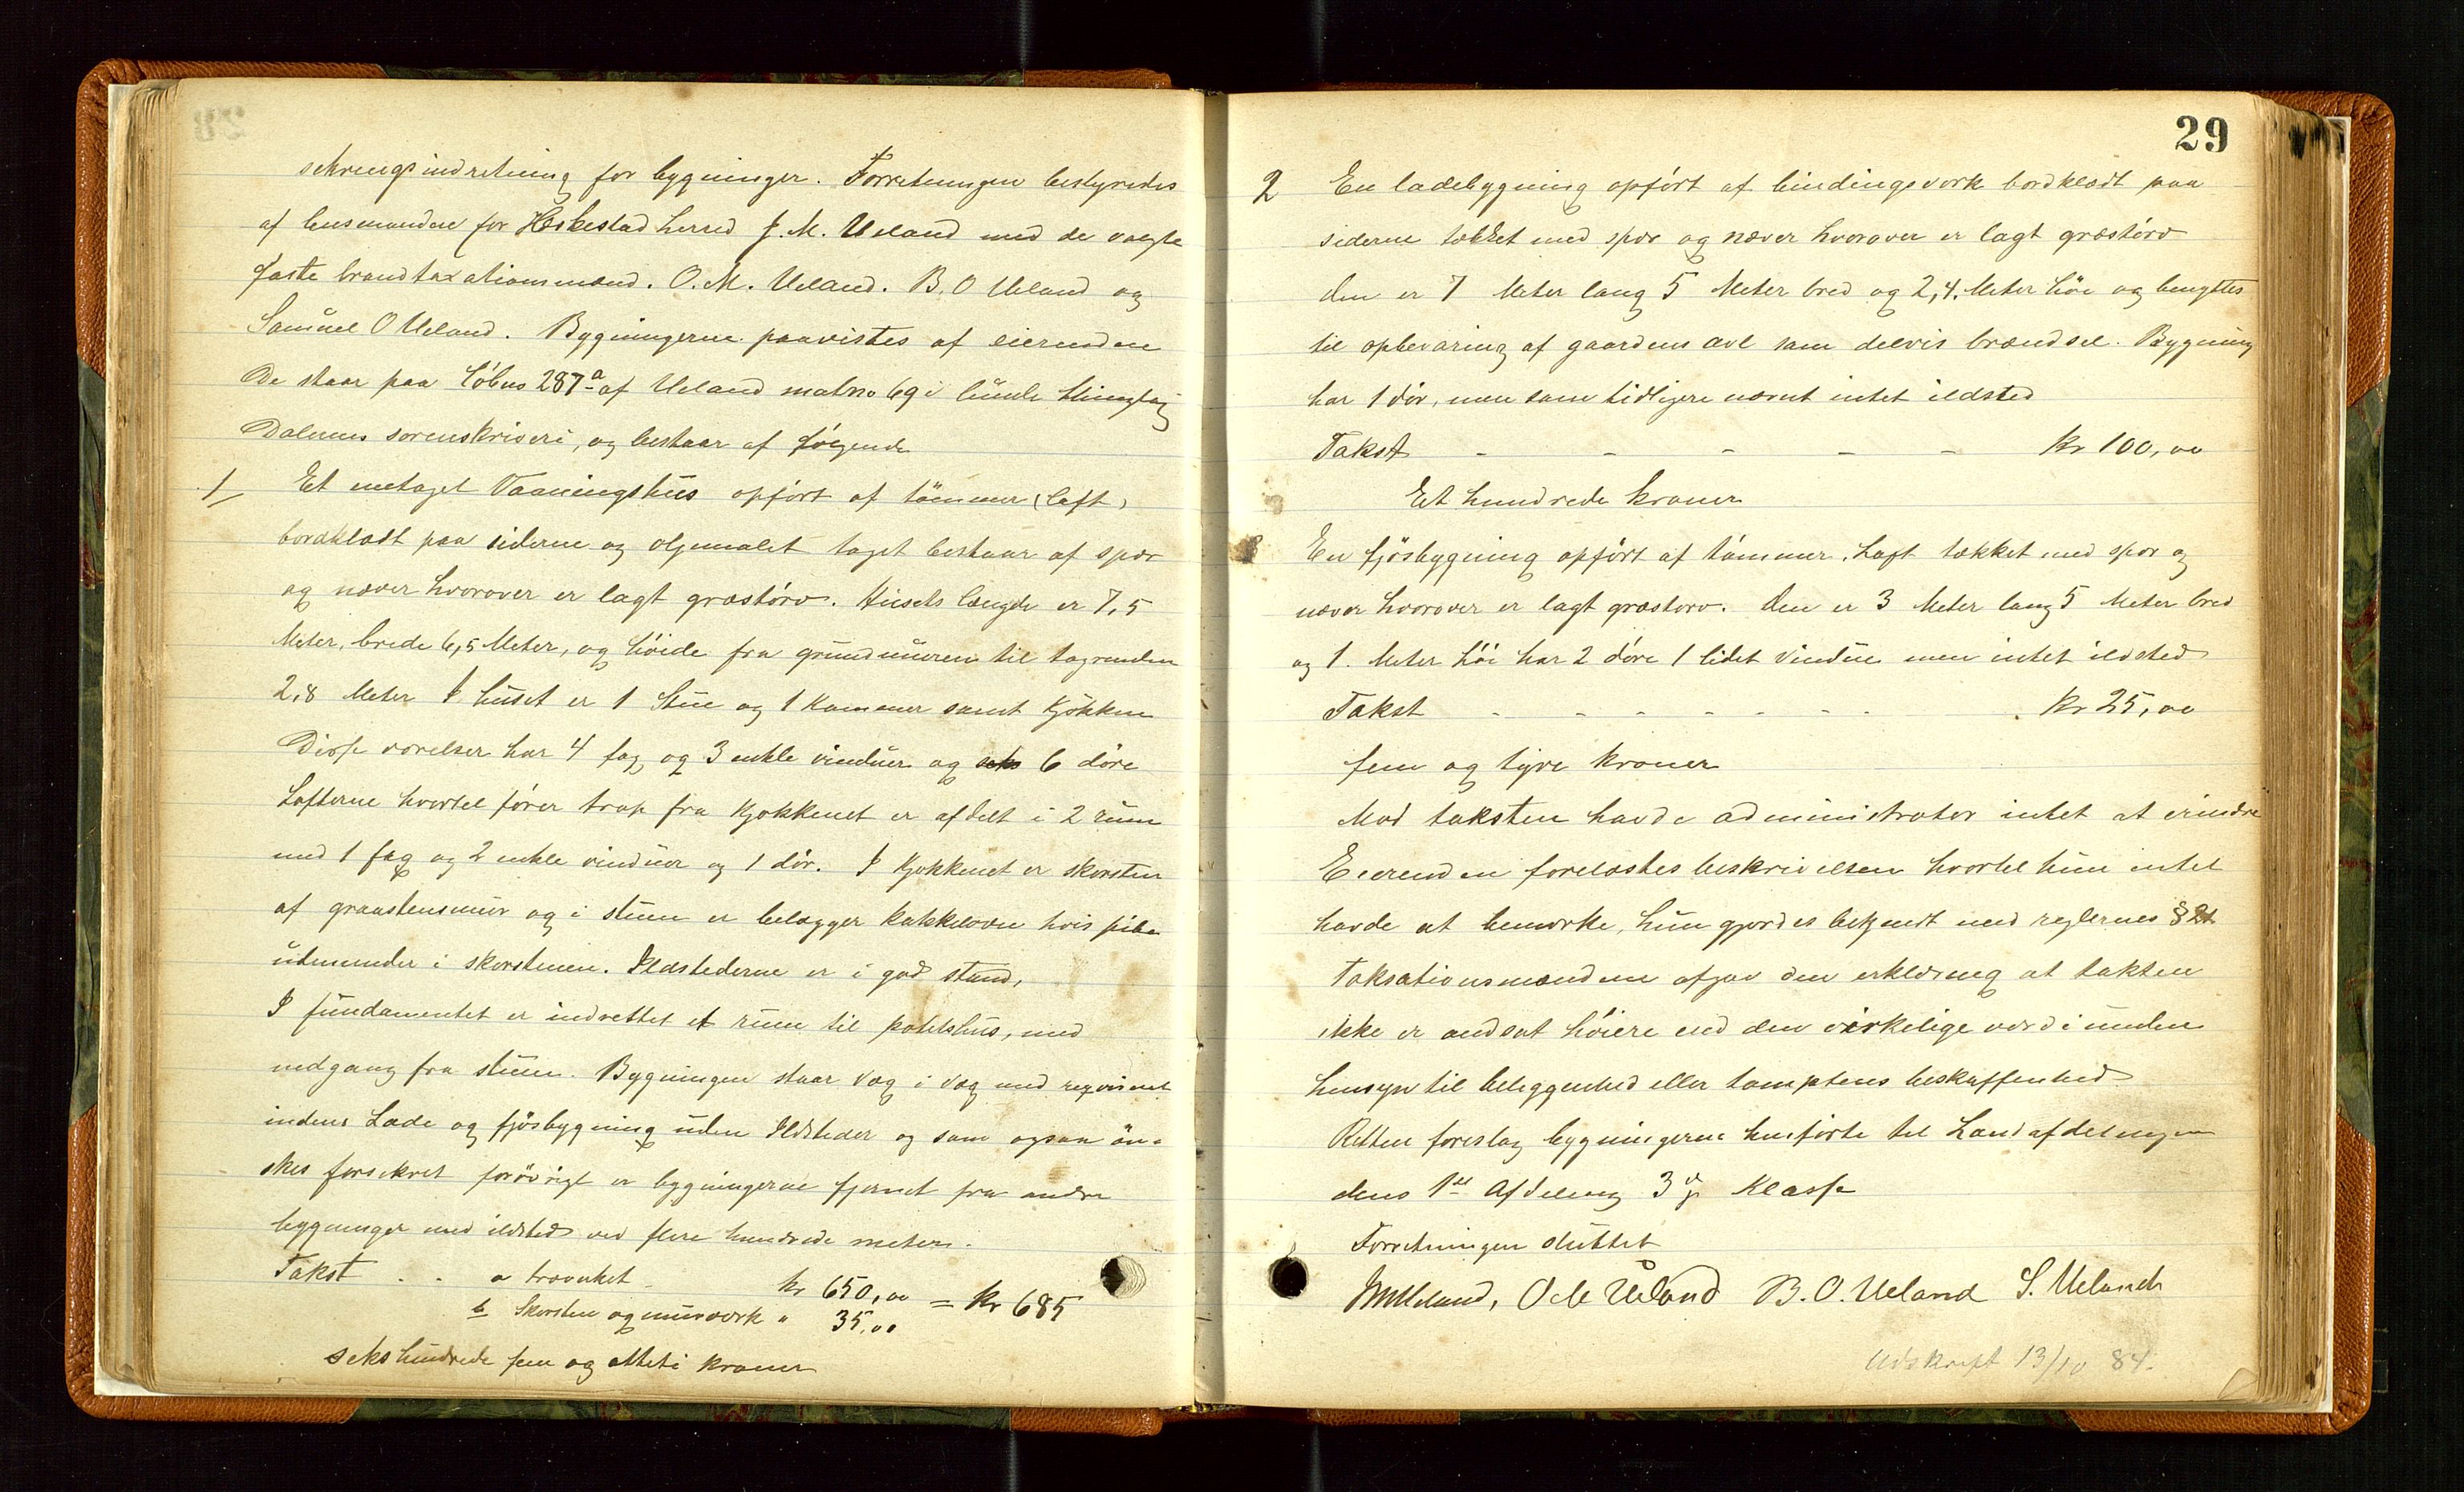 sikringsindretning for bygninger. Forretningen bestyredes
af lensmanden for Heskestad herred J. M. Ueland med de valgte
faste brandtaxationsmænd. O. M. Ueland. B. O Ueland og
Samuel O Ueland. Bygningerne paavistes af eierinden
De staar paa Løbno 287a af Ueland matno 69 i Lunde thinglag
Dalernes sorenskriveri, og bestaar af følgende
1/ Et enetaget Vaaningshus opført af tømmer (laft)
bordklædt paa siderne og oljemalet taget bestaar af spær
og næver hvorover er lagt græstørv. Husets længde er 7,5
Meter, brede 6,5 Meter, og høide fra grundmuren til tagrenden
2,8 Meter I huset er 1 Stue og 1 Kammer samt Kjøkken
Disse værelser har 4 fag og 3 enkle vinduer og 6 døre
Lofterne hvortil fører trap fra Kjøkkenet er afdelt i 2 rum
med 1 fag og 2 enkle vinduer og 1 dør. I Kjøkkenet er skorsten
af graastensmur og i stuen er bilægger kakkelovn hvis pibe
udmunder i skorstenen. Ildstederne er i god stand,
I fundamentet er indrettet et rum til potethus, med
nedgang fra stuen. Bygningen staar væg i væg med reqvirent
indens Lade og fjøsbygning uden Ildsteder og som ogsaa øn-
skes forsikret forøvrigt er bygningerne fjernet fra andre
bygninger med ildsted ved flere hundrede meter.
Takst . . a træverket kr 650,00 = kr 685
b Skorsten og murværk " 35,00
sekshundrede fem og otteti kroner
29
2 En ladebygning opført af bindingsverk bordklædt paa
siderne tækket med spær og næver hvorover er lagt græstørv
den er 7 Meter lang 5 Meter bred og 2,4. Meter høi og benyttes
til opbevaring af gaardens avl sam delvis brændsel. Bygning
har 1 dør, men som tidligere nævnt intet ildsted
Takst - - - - - Kr 100,00
Et hundrede kroner
3 En fjøsbygning opført af tømmer. Laft tækket med spær og
næver hvorover er lagt græstørv. Den er 3 Meter lang 5 Meter bred
og 1. Meter høi har 2 døre 1 lidet vindue men intet ildsted
Takst - - - - - - - . Kr 25,00
fem og tyve kroner
Mod taksten havde administrator intet at erindre
Eierinden forelæstes beskrivelsen hvortil hun intet
havde at bemærke, hun gjordes bekjendt med reglernes § 21
Taksationsmændene afgav den erklæring at taksten
ikke er andsat høiere end den virkelige værdi uden
hensyn til beliggenhed eller tomptens beskaffenhed
Retten foreslog bygningerne henførte til Landafdelingen
dens 1ste Afdeling 3die Klasse
Forretningen sluttet
JMUeland, O M Ueland B. O. Ueland S. Ueland
Udskrift 13/10 84.